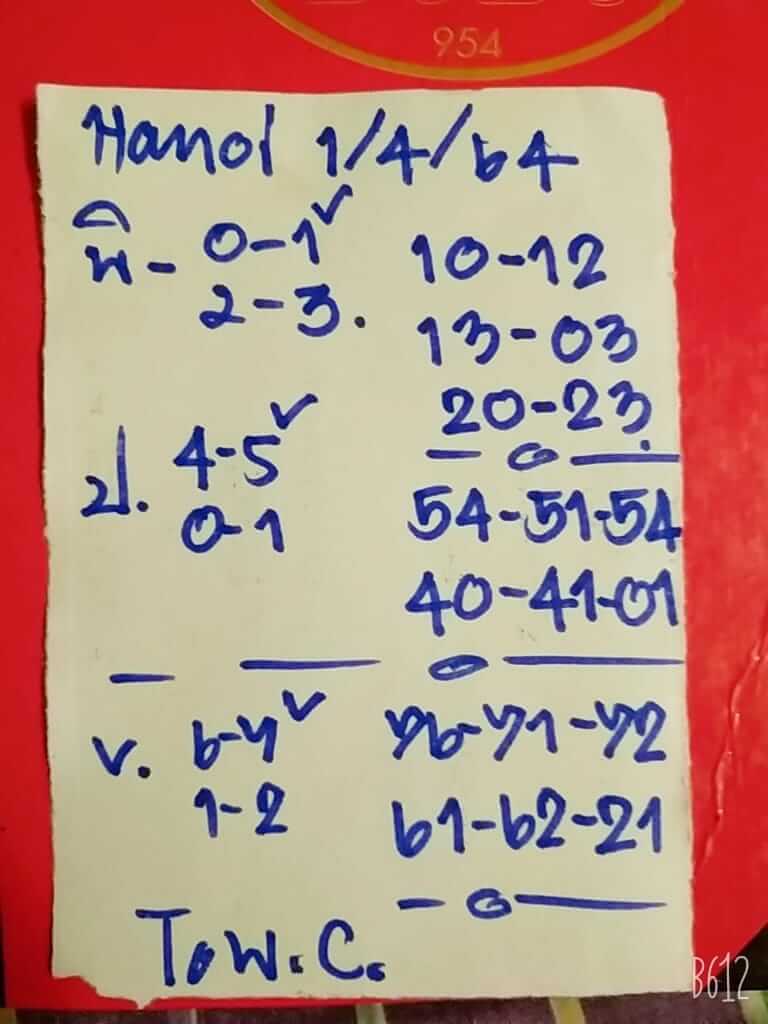 954
Hanoi 1/4/64
พิ - 0-1✓ 10-12
2-3. 13-03
20-23
ป. 4-5✓ 54-51-54
0-1 40-41-01
V. 6-7✓ 76-71-72
1-2 61-62-21
To W.C.
B612